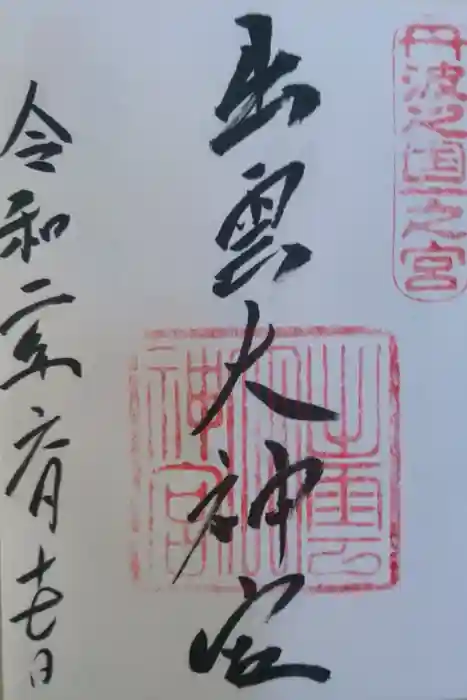 丹波之國一之宮
出雲大神宮
出雲大神宮
令和二年六月十七日